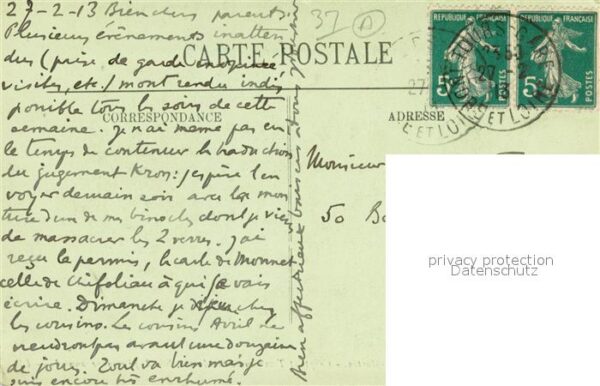 27-2-13 Bien chers parents.
Plusieurs évènements inatten
dus (prise de garde
visites, etc.) m'ont rendu indis
ponible tous les soirs de cette
semaine. Je n'ai même pas eu
le temps de continuer la traduction
du jugement Kron: j'espère l'en
voyer demain soir avec la mon
ture d'un de mes binocles dont je viens
de massacrer les 2 verres. J'ai
reçu le permis, la carte de Monnet
celle de à qui je vais
écrire. Dimanche je chez
les cousins. Les cousins Avril ne
viendront pas avant une douzaine
de jours. Tout va bien mais je
suis encore très enrhumé.
Bien affectueux baisers à tous
37 A
CARTE POSTALE
CORRESPONDANCE
ADRESSE
Monsieur
50
REPUBLIQUE FRANÇAISE
5c
REPUBLIQUE FRANÇAISE
5c
TOURS GARE
INDRE ET LOIRE
privacy protection
Datenschutz